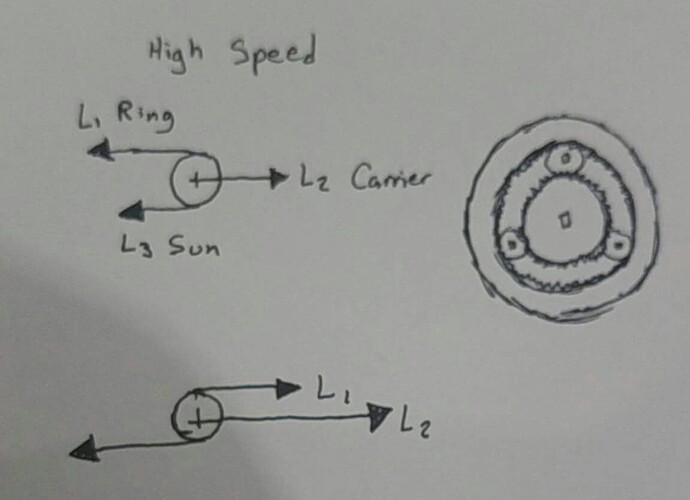 High Speed
L₁ Ring
L₂ Carrier
L₃ Sun
L₁
L₂